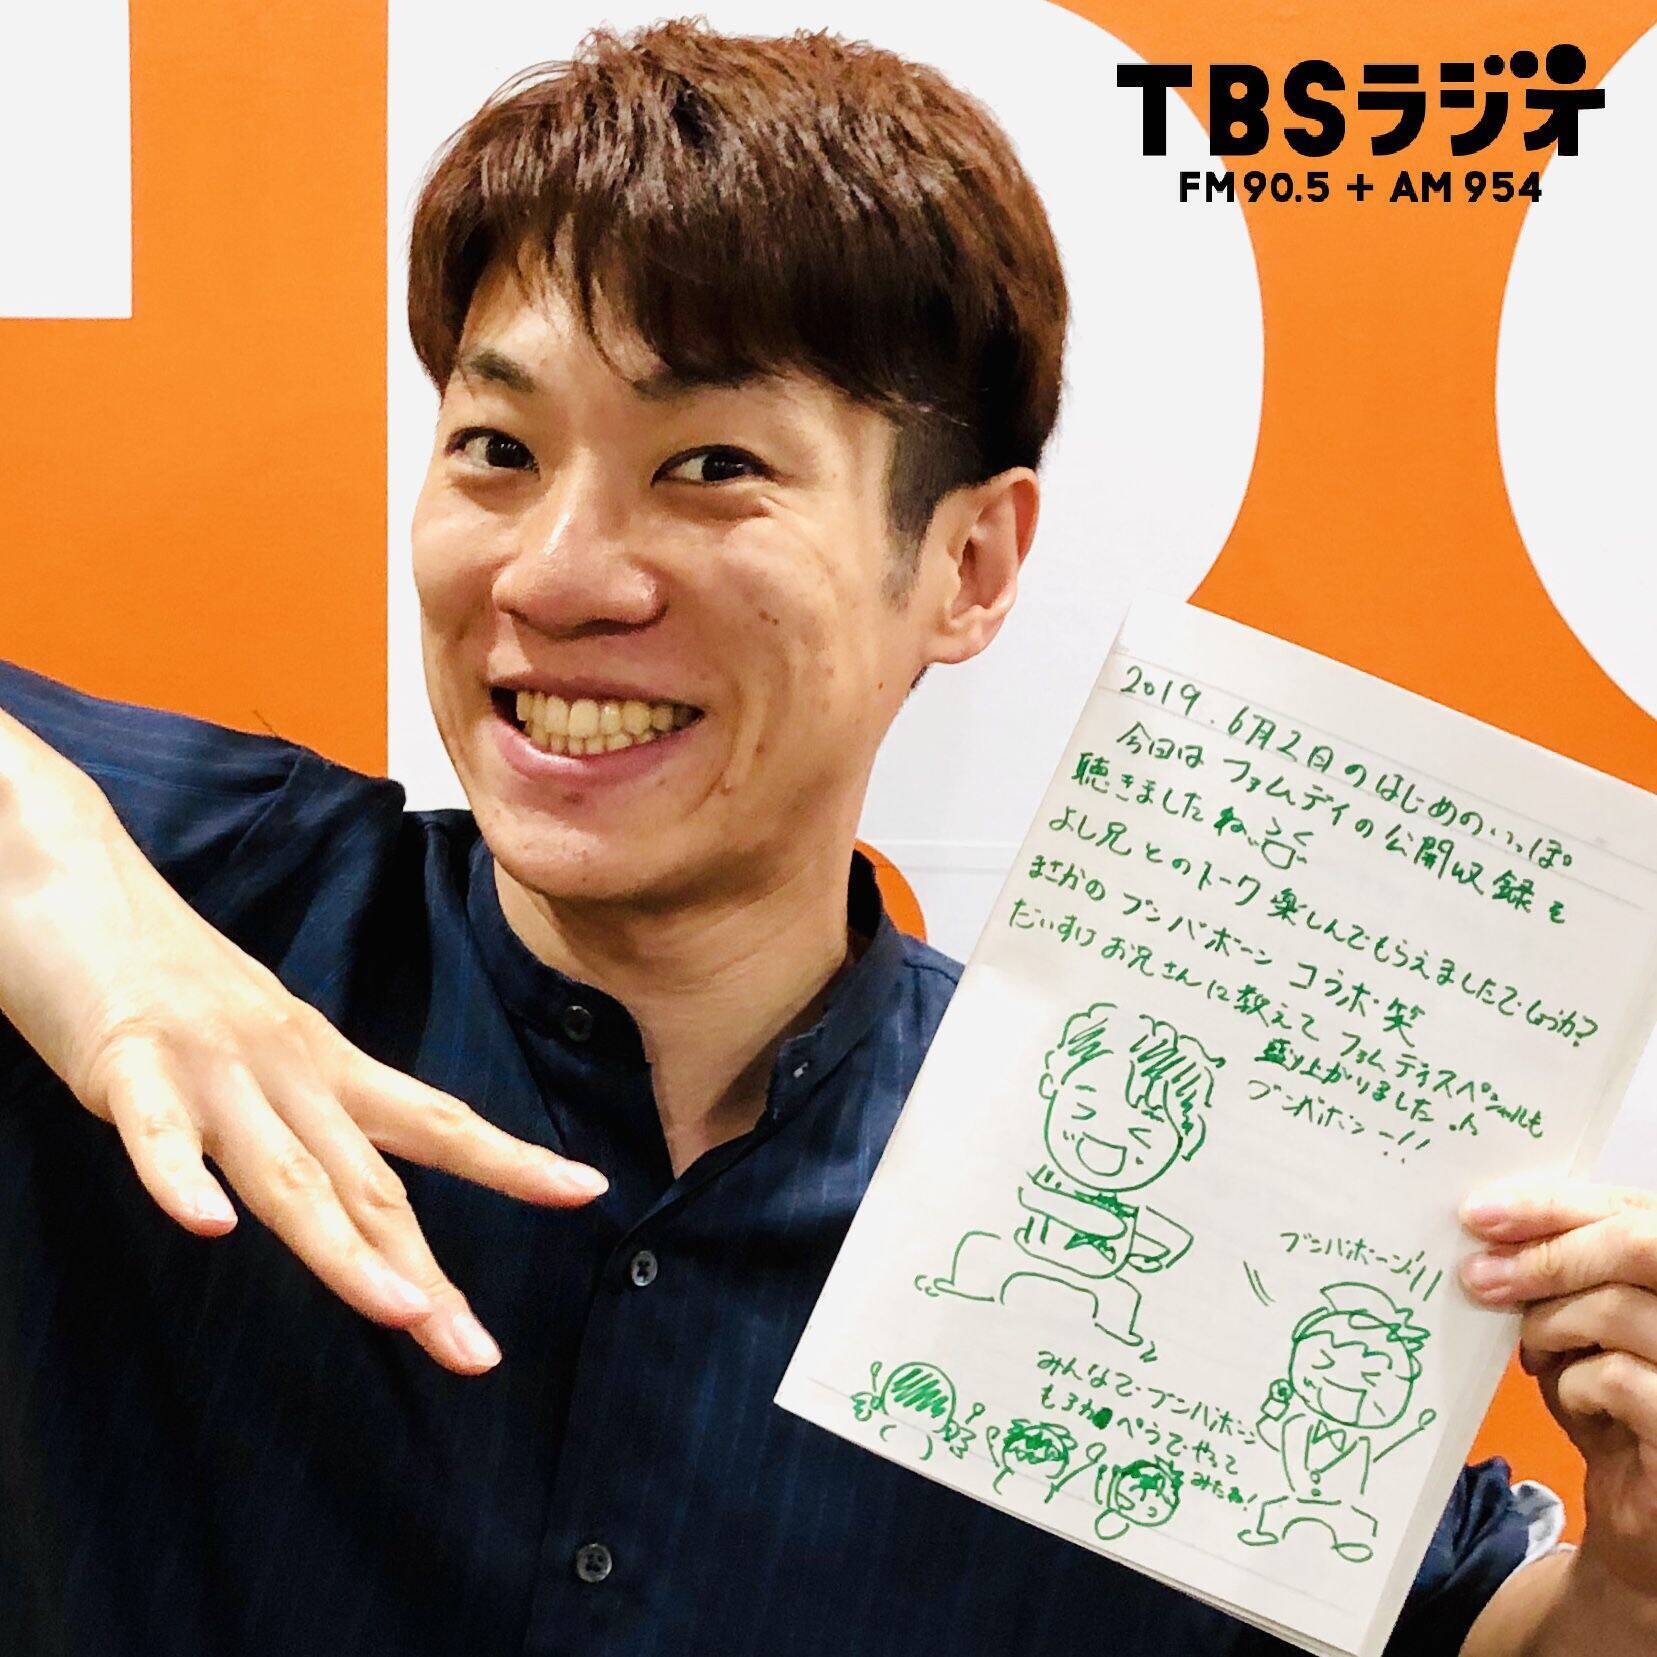 TBSラジオ
FM 90.5 + AM 954
2019.6月2日のはじめのいっぽ。
今回はファムディの公開収録を
聴きましたね
よし兄とのトーク楽しんでもらえましたでしょうか?
まさかのブンバボーンコラボ笑
だいすけお兄さんに教えてファムディスペシャルも
盛り上がりました。
ブンバボーン!!
ブンバボーン!!
みんなでブンバボーン
ペラでやって
みたね!